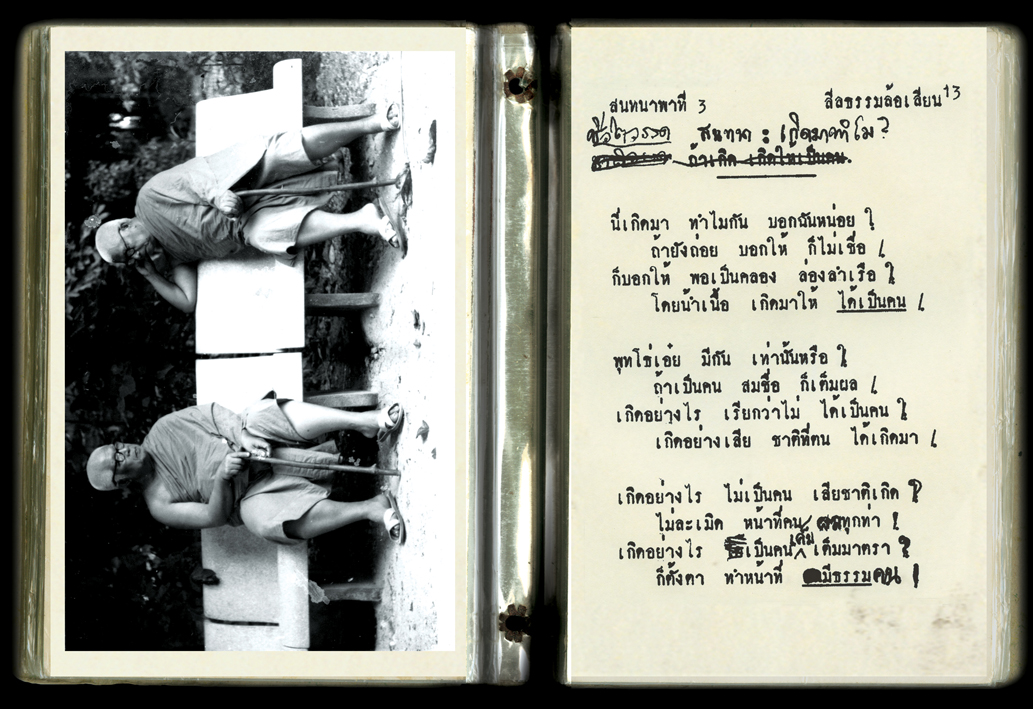 สนทนาพาที 3
ศีลธรรมล้อเลียน 13
สนทนา : เกิดมาทำไม?
ถ้าเกิด เกิดให้เป็นคน.
นี่เกิดมา ทำไมกัน บอกฉันหน่อย ?
ถ้ายังถ่อย บอกให้ ก็ไม่เชื่อ /
ก็บอกให้ พอเป็นคลอง ล่องลำเรือ ?
โดยน้ำเนื้อ เกิดมาให้ ได้เป็นคน /
พุทโธ่เอ๋ย มีกัน เท่านั้นหรือ ?
ถ้าเป็นคน สมชื่อ ก็เต็มผล /
เกิดอย่างไร เรียกว่าไม่ ได้เป็นคน ?
เกิดอย่างเสีย ชาติที่ตน ได้เกิดมา /
เกิดอย่างไร ไม่เป็นคน เสียชาติเกิด ?
ไม่ละเมิด หน้าที่คน ทุกท่า !
เกิดอย่างไร เป็นคน เต็ม เต็มมาตรา ?
ก็ตั้งตา ทำหน้าที่ มีธรรมคน !